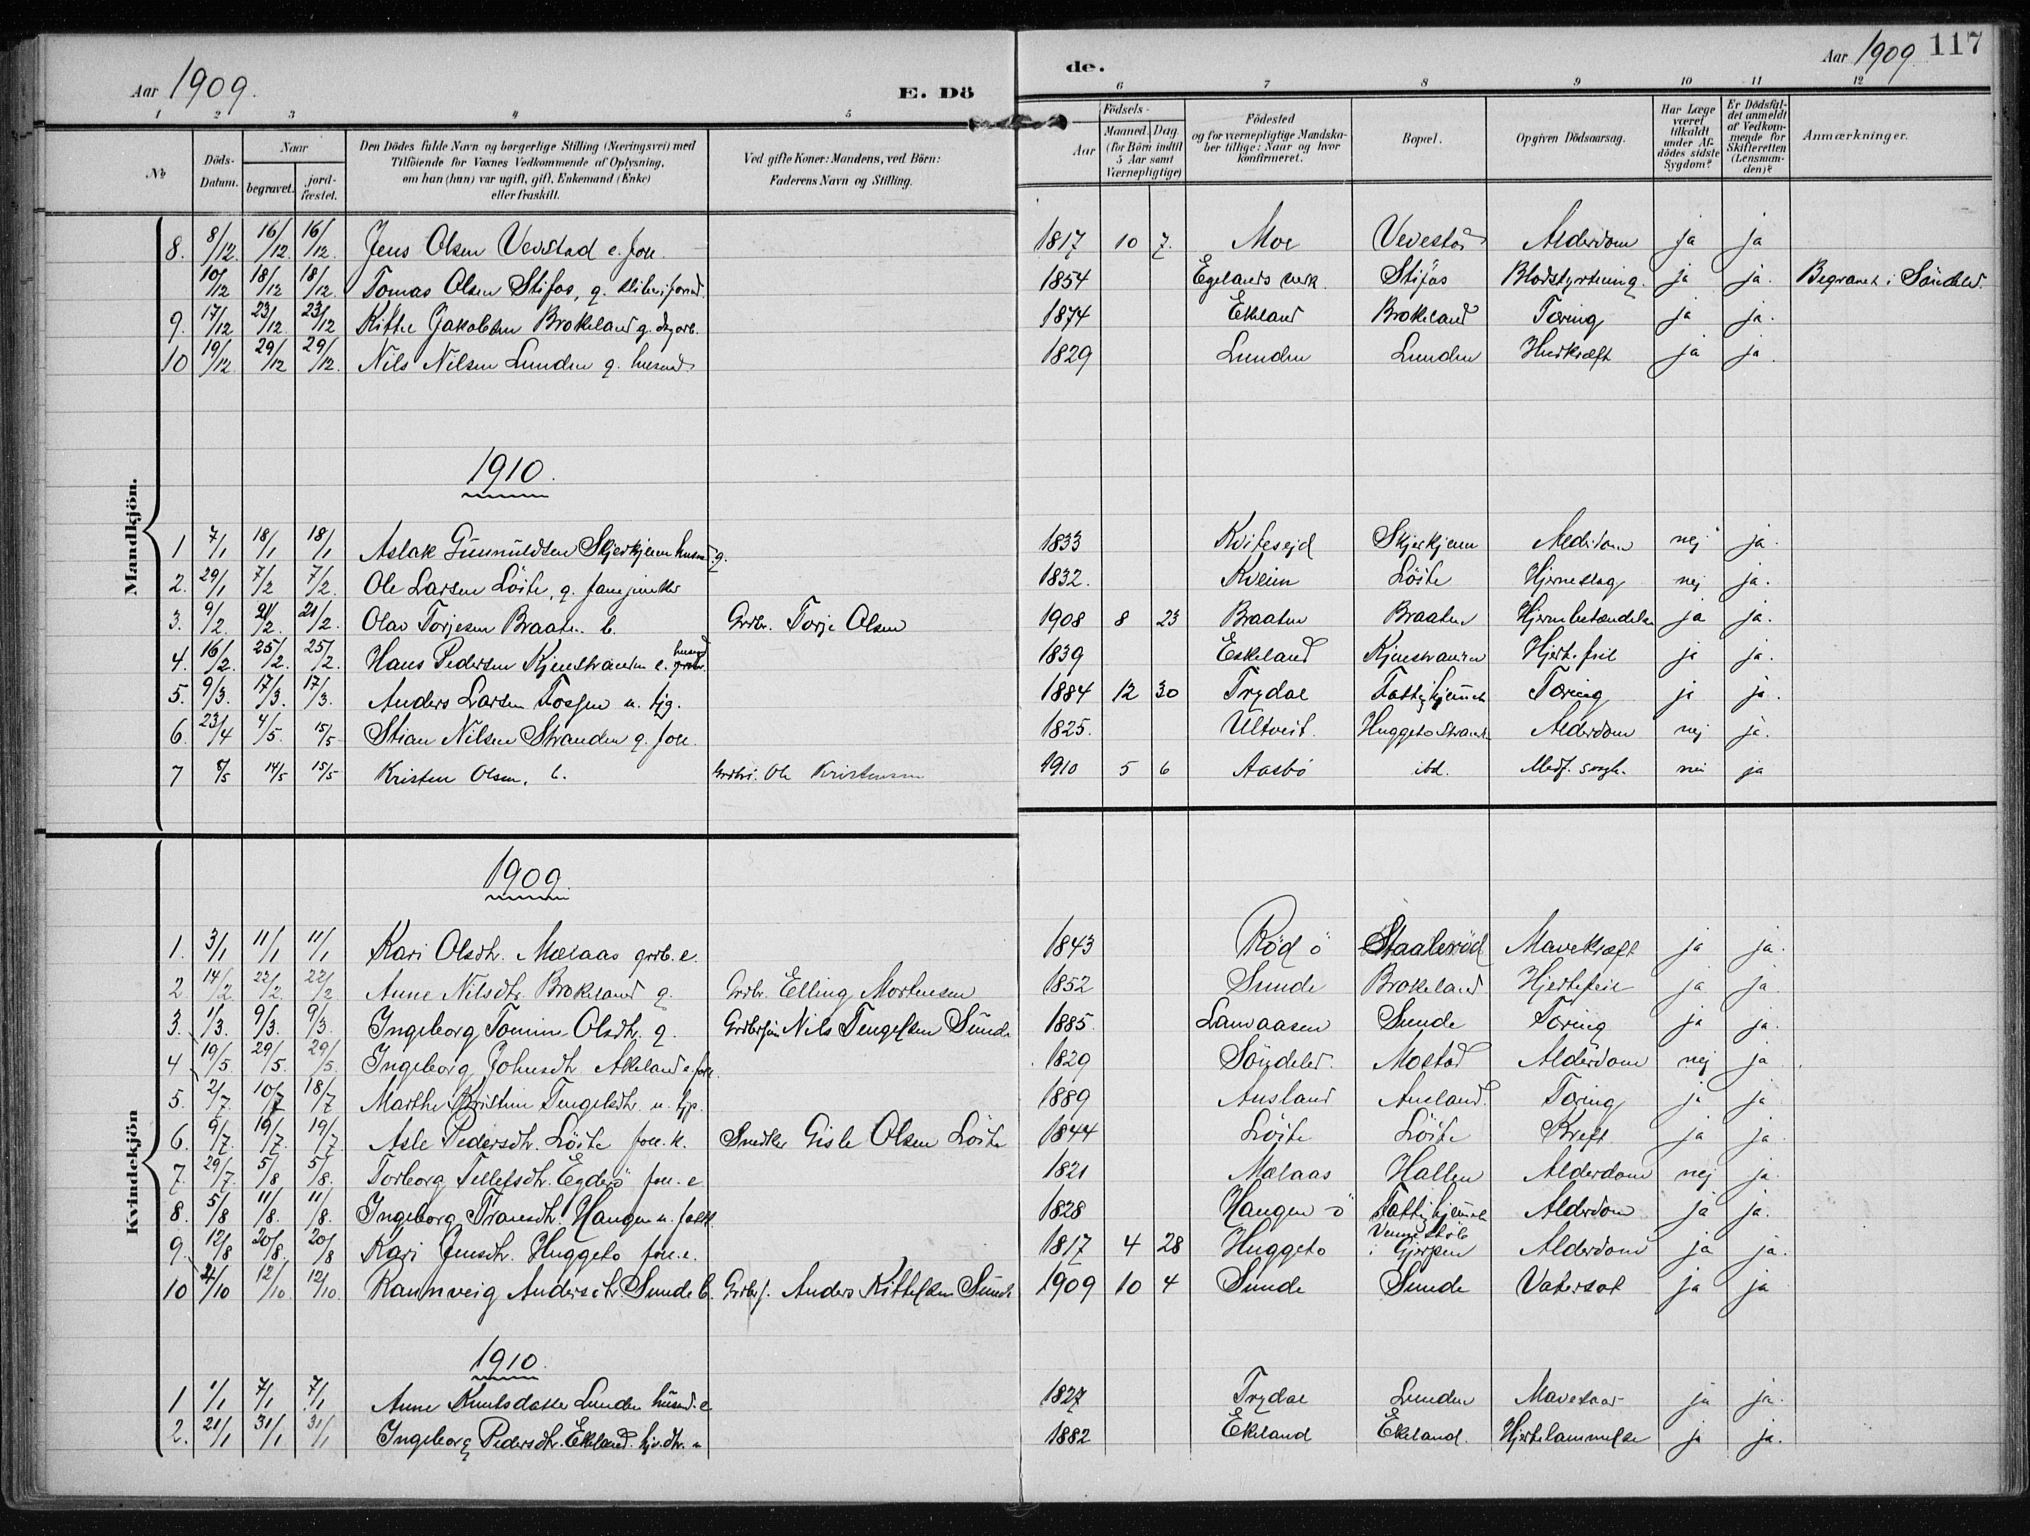 Aar 1909. E. Dö
de. Aar 1909 117
1 2 3 4 5
6 7 8 9 10 11 12
No
Döds-Datum.
Naar
begravet.
jord-fæstet.
Den Dödes fulde Navn og borgerlige Stilling (Næringsvei) med
Tilföiende for Voxnes Vedkommende af Oplysning,
om han (hun) var ugift, gift, Enkemand (Enke)
eller fraskilt.
Ved gifte Koner: Mandens, ved Börn:
Faderens Navn og Stilling.
Födsels-
Aar
Maaned. Dag.
(for Börn indtil
5 Aar samt
Værnepligtige)
Födested
og for værnepligtige Mandska-
ber tillige: Naar og hvor
konfirmeret.
Bopæl.
Opgiven Dödsaarsag.
Har Læge
været
tilkaldt
under Af-
dödes sidste
Sygdom?
Er Dödsfal-
det anmeldt
af Vedkom-
mende for
Skifteretten
(Lensman-
den)?
Anmærkninger.
Mandkjön.
8. 8/12. 16/12. 16/12. Jens Olsen Vevstad e. 1817 10 7. Moe Alderdom ja ja
10/12 18/12 18/12. Tomas Olsen Stifos, g. 1854 Egelands verk. Stifos Blodstyrtning. ja ja. Begravet i Söndeled.
9. 17/12. 23/12. 23/12 Kittel Jakobsen Brokeland g. 1874 Ekeland Brokeland Tæring ja ja.
10 19/12. 29/12 29/12. Nils Nilsen Lunden g. husmd. 1829 Lunden Lunden ja ja.
1910.
1 7/1 18/1 18/1 Aslak Gunnuldsen Skjerkjenn husmd. g. 1833 Kvitesejd Skjerkjenn nej ja.
2. 29/1 7/2 7/2. Ole Larsen Löite, g. 1832. Kveim Löite Hjerneslag nej ja.
3. 9/2. 21/2. 21/2. Olav Torjesen Braaten. b. Grdbr. Torje Olsen 1908 8 23 Braaten Braaten ja ja.
4. 16/2. 25/2. 25/2. Hans Pedersen e. 1839 Eskeland Hjertefeil ja ja.
5. 9/3. 17/3. 17/3. Anders Larsen u. 1884 12 30 Trydal Tæring ja ja.
6. 23/4 4/5. 15/5 Stian Nilsen Stranden g. 1825. Ultveit. Alderdom nej ja.
7 8/5 14/5 15/5 Kristen Olsen, b. Ole Kristensen 1910 5 6 Aasbö ibd. nei ja
Kvindekjön
1909.
1. 3/1 11/1 11/1 Kari Olsdtr. Mælaas grrb. e. 1843 Röd ö Staaleröd Mavekræft ja ja.
2 14/2. 22/2. 22/2. Anne Nilsdtr. Brokeland g. Grdbr. Elling Mortensen 1852 Sunde Brokeland Hjertefeil ja ja.
3. 1/3. 9/3. 9/3. Ingeborg Tomine Olsdtr. g. Nils Tengelsen Sunde 1885. Sunde Tæring ja ja.
4 19/5 29/5. 29/5. Ingeborg Johnsdtr. Akeland e. 1829 Söndeled. Mostad Alderdom nej ja
5. 2/7. 10/7 18/7 Marthe Kristine Tengelsdtr. u. 1889 Ausland Ausland. Tæring ja ja
6. 9/7. 19/7. 19/7. Asle Pedersdtr. Löite Snedker Gisle Olsen Löite 1844 Löite Löite Kreft ja ja.
7. 29/7. 5/8 5/8. Torborg Tellefsdtr. e. 1821 Mælaas Hallen Alderdom nej ja.
8. 5/8 11/8. 11/8. Ingeborg Haugen u. 1828 Haugen ö Alderdom ja ja.
9. 12/8 20/8. 20/8 Kari Jensdtr. Huggetö e. 1817 4 28 Huggetö i Gjerpen Alderdom ja ja.
10 12/10 12/10. Raunveig Andersdtr. Sunde b. Anders Kittelsen Sunde 1909 10 4 Sunde Sunde Vatersot ja ja
1910.
1 1/1 7/1 7/1 Anne Knutsdatter Lunden husmd. e. 1827 Trydal Lunden Mavesaar ja ja.
2. 21/1 31/1 31/1 Ingeborg Pedersdtr. Ekeland. u 1882 Ekeland Ekeland. Hjertelammelse ja ja.